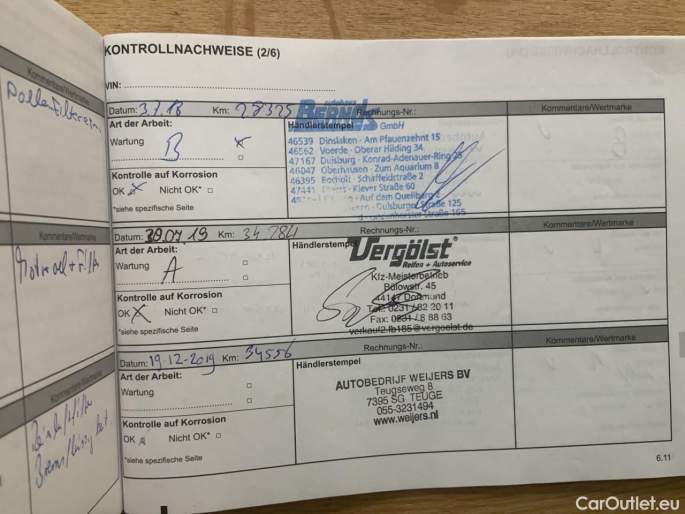 KONTROLLNACHWEISE (2/6)
VIN:
Kommentare/Wertmarke
Pollenfilter
Datum: 3.7.18 Km: 28325 Rechnungs-Nr.: Kommentare/Wertmarke
Art der Arbeit:
Wartung B x
Kontrolle auf Korrosion
OK x Nicht OK*
*siehe spezifische Seite
Händlerstempel
autohaus
BERNDS
GmbH
46539 Dinslaken · Am Pfauenzehnt 15
46562 Voerde · Oberer Hilding 34
47167 Duisburg · Konrad-Adenauer-Ring
46047 Oberhausen · Zum Aquarium 8
46395 Bocholt · Schaffeldstraße 2
47441 Klever Straße 60
Auf dem Quellberg
Duisburger Straße 125
165
Kommentare/Wertmarke
Motoroel + Filter
Datum: 29.07.19 Km: 34 784 Rechnungs-Nr.: Kommentare/Wertmarke
Art der Arbeit:
Wartung A
Kontrolle auf Korrosion
OK x Nicht OK*
*siehe spezifische Seite
Händlerstempel
Vergölst®
Reifen + Autoservice
Kfz-Meisterbetrieb
Bülowstr. 45
44147 Dortmund
Tel: 0231 / 82 20 11
Fax: 0231 / 8 88 63
verkauf2.fb185@vergoelst.de
Kommentare/Wertmarke
Bremsflüssigkeit
Datum: 19-12-2019 Km: 34556 Rechnungs-Nr.: Kommentare/Wertmarke
Art der Arbeit:
Wartung
Kontrolle auf Korrosion
OK Nicht OK*
*siehe spezifische Seite
Händlerstempel
AUTOBEDRIJF WEIJERS BV
Teugseweg 8
7395 SG TEUGE
055-3231494
www.weijers.nl
6.11
CarOutlet.eu